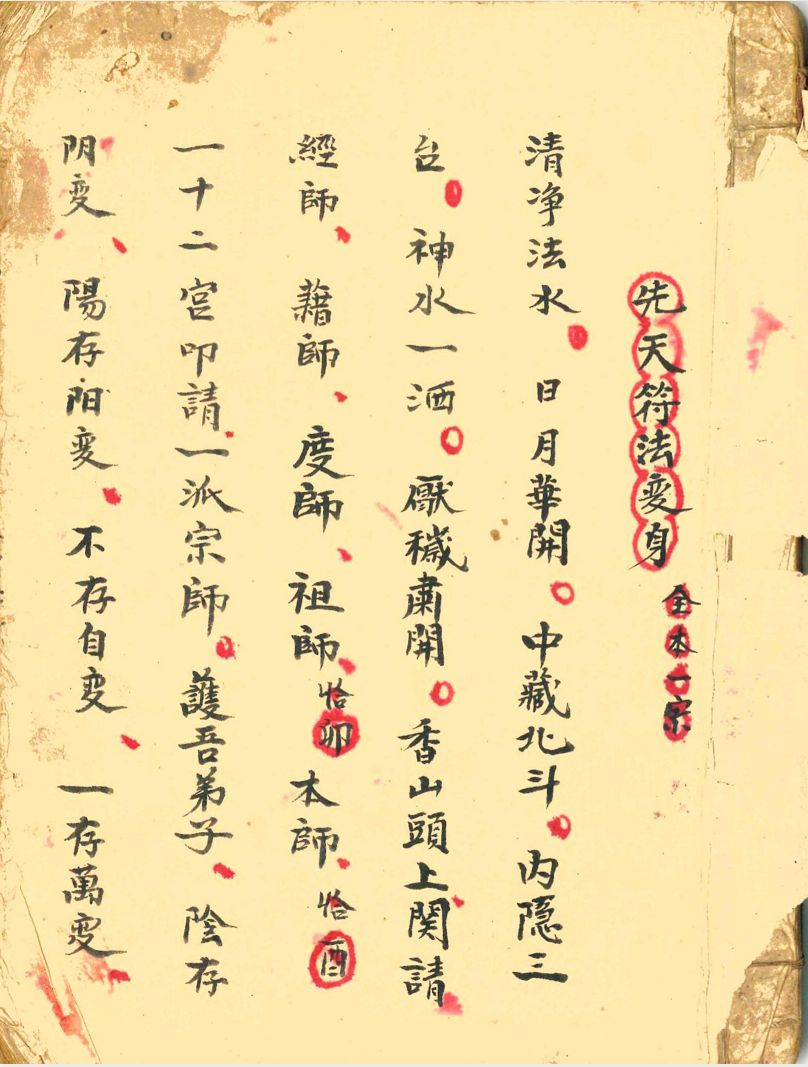 先天符法变身
全本一宗
清净法水 日月華開 中藏北斗 内隠三
台 神水一洒 厭穢肅開 香山頭上関請
經師 藉師 度師 祖師 恰卯 本師 恰酉
一十二宮叩請 一派宗師 護吾弟子 陰存
阴变 陽存阳变 不存自变 一存萬变